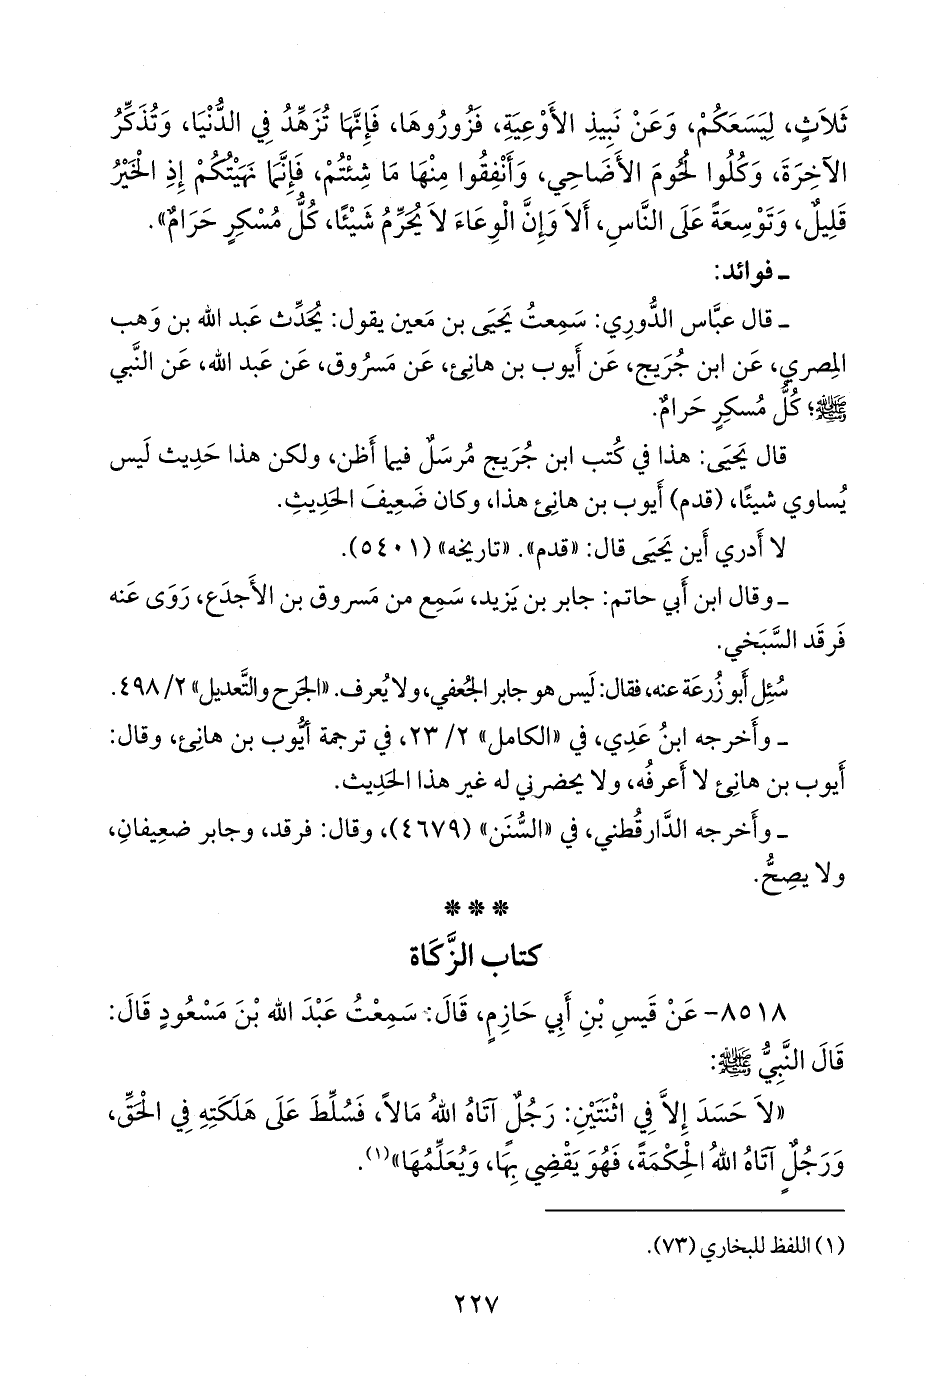 ثَلاَثٍ، لِيَسَعَكُمْ، وَعَنْ نَبِيذِ الأَوْعِيَةِ، فَزُورُوهَا، فَإِنَّهَا تُزَهِّدُ فِي الدُّنْيَا، وَتُذَكِّرُ
الآخِرَةَ، وَكُلُوا لُحُومَ الأَضَاحِي، وَأَنْفِقُوا مِنْهَا مَا شِئْتُمْ، فَإِنَّمَا نَهَيْتُكُمْ إِذِ الْخَيْرُ
قَلِيلٌ، وَتَوْسِعَةً عَلَى النَّاسِ، أَلاَ وَإِنَّ الْوِعَاءَ لاَ يُحَرِّمُ شَيْئًا، كُلُّ مُسْكِرٍ حَرَامٌ».
ـ فوائد:
ـ قال عبَّاس الدُّورِي: سَمِعتُ يَحيَى بن مَعين يقول: يُحَدِّث عَبد الله بن وَهب
المِصري، عَن ابن جُرَيج، عَن أَيوب بن هانِئ، عَن مَسرُوق، عَن عَبد الله، عَن النَّبي
ﷺ؛ كُلُّ مُسكِرٍ حَرامٌ.
قال يَحيَى: هذا في كُتب ابن جُرَيج مُرسَلٌ فيما أَظن، ولكن هذا حَدِيث لَيس
يُساوي شيئًا، (قدم) أَيوب بن هانِئ هذا، وكان ضَعِيفَ الحَدِيثِ.
لا أَدري أَين يَحيَى قال: «قدم». «تاريخه» (٥٤٠١).
ـ وقال ابن أَبي حاتم: جابر بن يَزيد، سَمِع من مَسروق بن الأَجدَع، رَوَى عَنه
فَرقَد السَّبَخي.
سُئِل أَبو زُرعَة عنه، فقال: لَيس هو جابر الجُعفي، ولا يُعرف. «الجَرح والتَّعديل» ٢/ ٤٩٨.
ـ وأَخرجه ابنُ عَدِي، في «الكامل» ٢/ ٢٣، في ترجمة أَيُّوب بن هانِئ، وقال:
أَيوب بن هانِئ لا أَعرفُه، ولا يحضرني له غير هذا الحَدِيث.
ـ وأَخرجه الدَّارقُطني، في «السُّنَن» (٤٦٧٩)، وقال: فرقد، وجابر ضعِيفانِ،
ولا يصِحُّ.
* * *
كتاب الزَّكَاة
٨٥١٨- عَنْ قَيسِ بْنِ أَبِي حَازِمٍ، قَالَ: سَمِعْتُ عَبْدَ الله بْنَ مَسْعُودٍ قَالَ:
قَالَ النَّبِيُّ ﷺ:
«لاَ حَسَدَ إِلاَّ فِي اثْنَتَيْنِ: رَجُلٌ آتَاهُ اللهُ مَالاً، فَسُلِّطَ عَلَى هَلَكَتِهِ فِي الْحَقِّ،
وَرَجُلٌ آتَاهُ اللهُ الْحِكْمَةَ، فَهُوَ يَقْضِي بِهَا، وَيُعَلِّمُهَا»(١).
(١) اللفظ للبخاري (٧٣).
٢٢٧